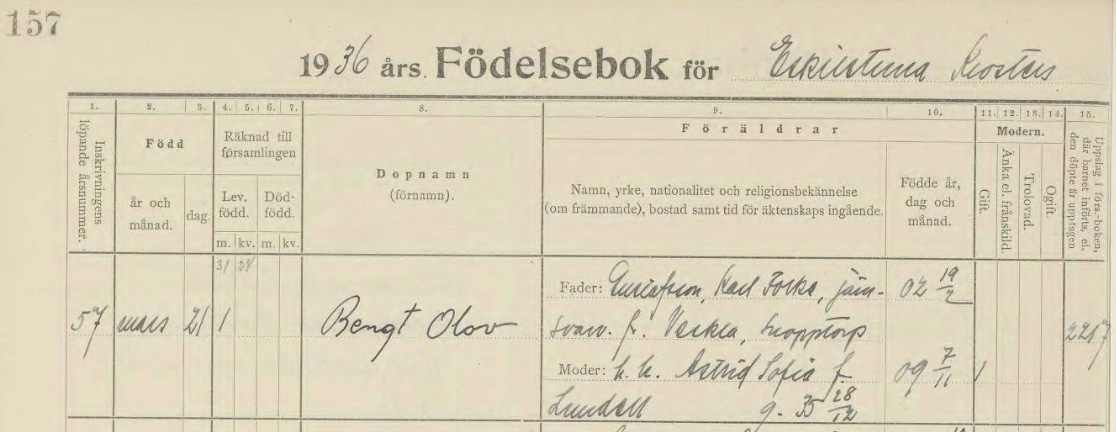 157
1936 års Födelsebok för Eskilstuna Klosters
1. 2. 3. 4. 5. 6. 7. 8. 9. 10. 11. 12. 13. 14. 15.
Inskrivningens löpande årsnummer.
Född
år och månad.
dag.
Räknad till församlingen
Lev. född.
Död- född.
m. kv. m. kv.
Dopnamn
(förnamn).
Föräldrar
Namn, yrke, nationalitet och religionsbekännelse
(om främmande), bostad samt tid för äktenskaps ingående.
Födde år,
dag och
månad.
Modern.
Gift.
Änka el. frånskild.
Trolovad.
Ogift.
Uppslag i förs.-boken,
där barnet införts, el.
den döpte är upptagen
31 24
57 mars 21 1 Bengt Olov
Fader: Gustafsson, Karl Folke, järn- 02 19/2
svarv. f. Vackla, Snopptorp 2217
Moder: h. h. Astrid Sofia f. 09 7/11 1
Lundell g. 35 28/12